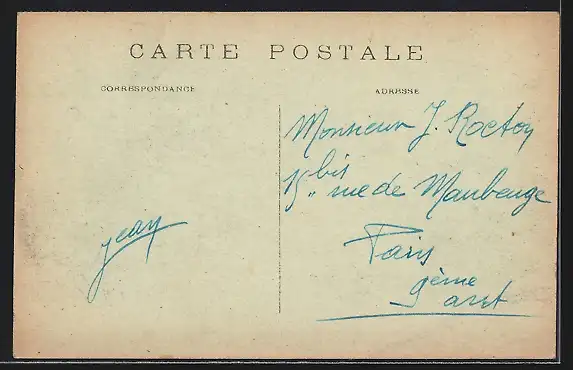 CARTE POSTALE
CORRESPONDANCE
ADRESSE
Monsieur J. Roctoy
15 bis rue de Maubeuge
Paris
9ème arrt
Jean